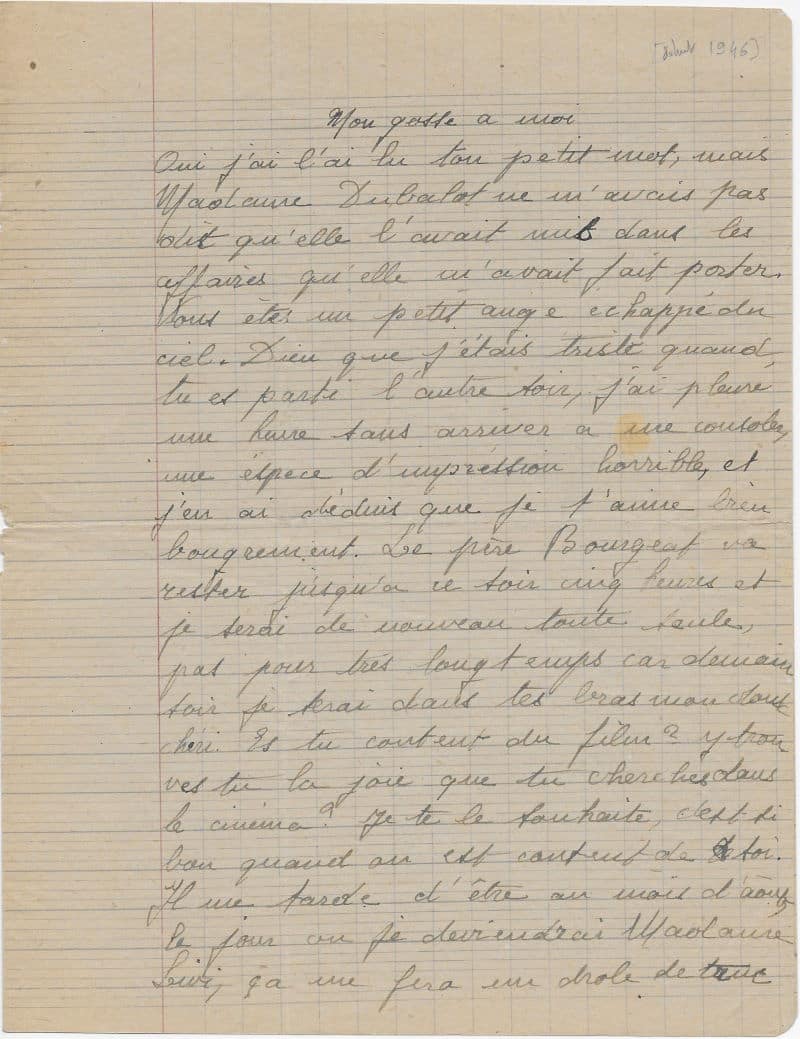 [début 1946]
Mon gosse a moi
Oui j'ai l'ai lu ton petit mot, mais
Madame Dubalot ne m'avais pas
dit qu'elle l'avait mis dans les
affaires qu'elle m'avait fait porter.
Vous êtes un petit ange echappé du
ciel. Dieu que j'étais triste quand
tu es parti l'autre soir, j'ai pleuré
une heure sans arriver a me consoler,
une éspece d'impréssion horrible, et
j'en ai déduis que je t'aime bien
bougrement. Le père Bourgeat va
rester jusqu'a ce soir cinq heures et
je serai de nouveau toute seule,
pas pour trés longtemps car demain
soir je serai dans tes bras mon doux
chéri. Es tu content du film? y trou
ves tu la joie que tu cherches dans
le cinéma? Je te le souhaite, c'est si
bon quand on est content de soi.
Il me tarde d'être au mois d'août,
le jour ou je deviendrai Madame
Livi, ça me fera un drole de truc